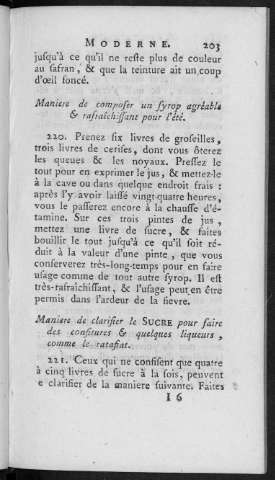 MODERNE. 203
jusqu'à ce qu'il ne reste plus de couleur
au safran, & que la teinture ait un coup
d'œil foncé.
Maniere de composer un syrop agréable
& rafraîchissant pour l'été.
220. Prenez six livres de groseilles,
trois livres de cerises, dont vous ôterez
les queues & les noyaux. Pressez le
tout pour en exprimer le jus, & mettez-le
à la cave ou dans quelque endroit frais :
après l'y avoir laissé vingt-quatre heures,
vous le passerez encore à la chausse d'é-
tamine. Sur ces trois pintes de jus,
mettez une livre de sucre, & faites
bouillir le tout jusqu'à ce qu'il soit ré-
duit à la valeur d'une pinte, que vous
conserverez très-long-temps pour en faire
usage comme de tout autre syrop. Il est
très-rafraîchissant, & l'usage peut en être
permis dans l'ardeur de la fievre.
Maniere de clarifier le SUCRE pour faire
des confitures & quelques liqueurs,
comme le ratafiat.
221. Ceux qui ne confisent que quatre
à cinq livres de sucre à la fois, peuvent
e clarifier de la maniere suivante. Faites
I 6